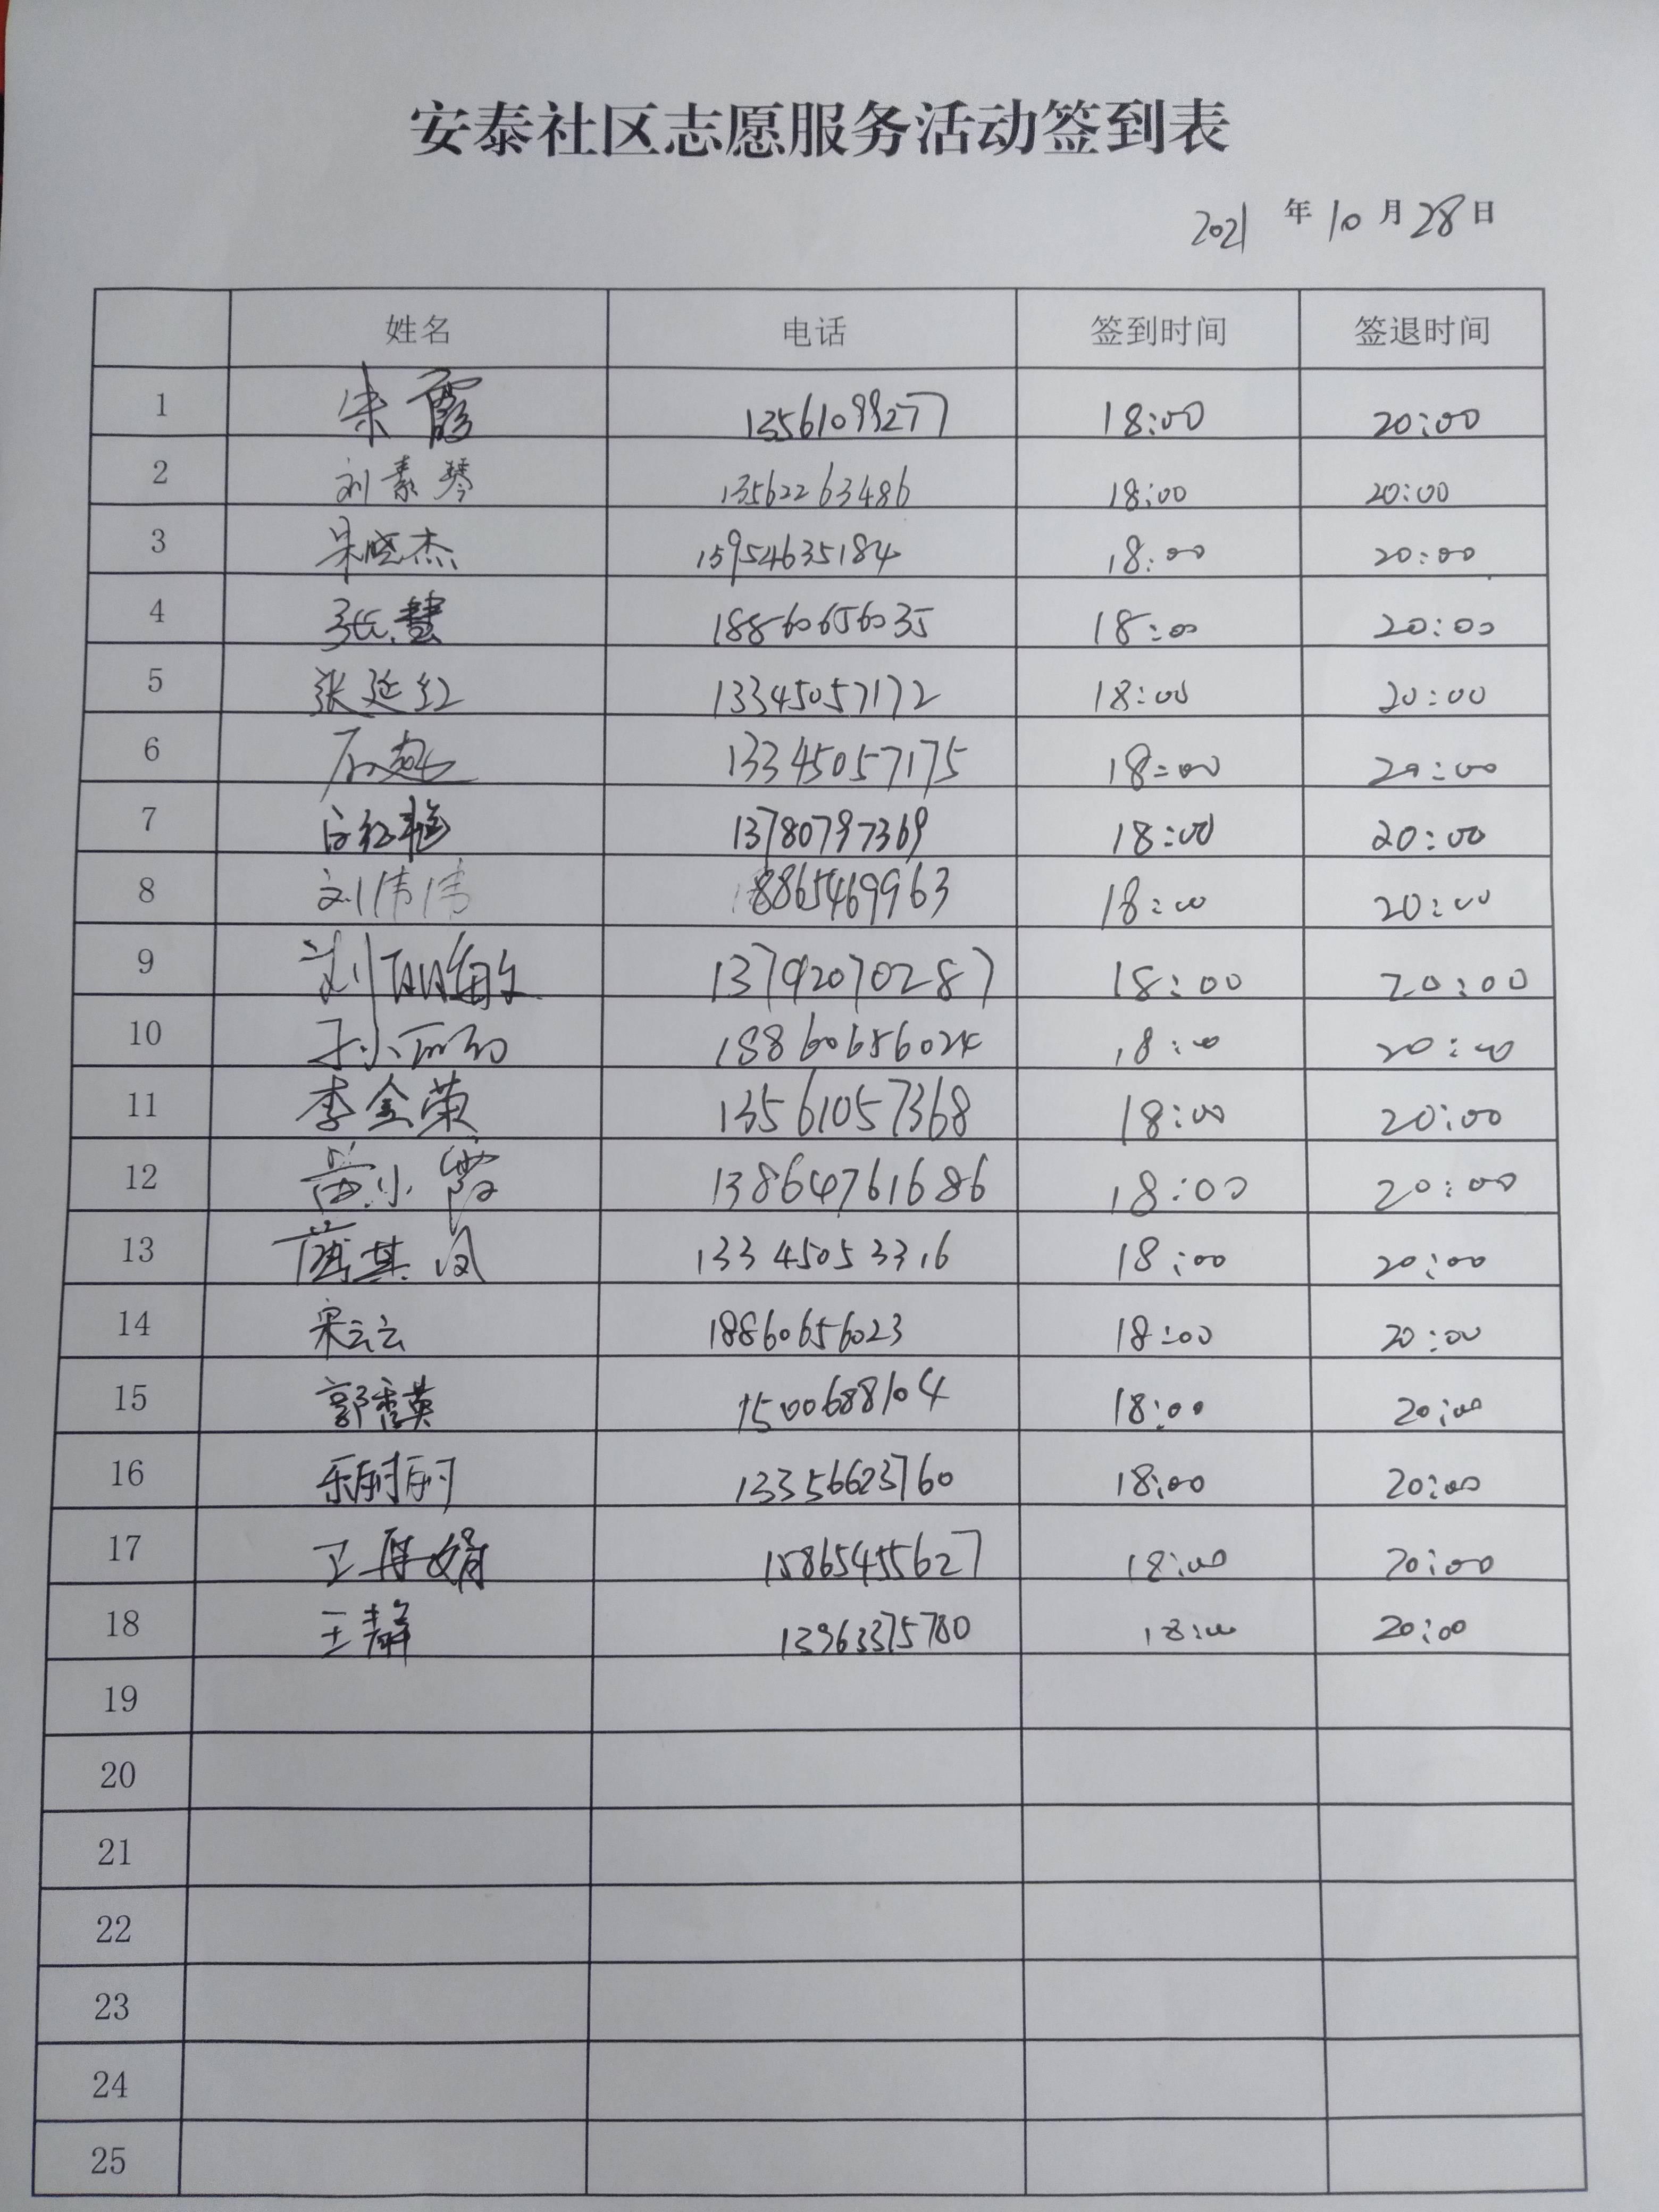 安泰社区志愿服务活动签到表
2021 年 10 月 28 日
姓名 电话 签到时间 签退时间
1 朱霞 13561099277 18:00 20:00
2 刘素琴 13562263486 18:00 20:00
3 宋晓杰 15954635184 18:00 20:00
4 张慧 18860656035 18:00 20:00
5 张延红 13345057172 18:00 20:00
6 13345057175 18:00 20:00
7 13780797369 18:00 20:00
8 刘伟伟 18865469963 18:00 20:00
9 13792070287 18:00 20:00
10 孙小丽 18860656024 18:00 20:00
11 李金荣 13561057368 18:00 20:00
12 苗小霞 13864761686 18:00 20:00
13 13345053316 18:00 20:00
14 宋云云 18860656023 18:00 20:00
15 郭秀英 1500688104 18:00 20:00
16 13356623760 18:00 20:00
17 15865455627 18:00 20:00
18 王静 13963375780 18:00 20:00
19
20
21
22
23
24
25